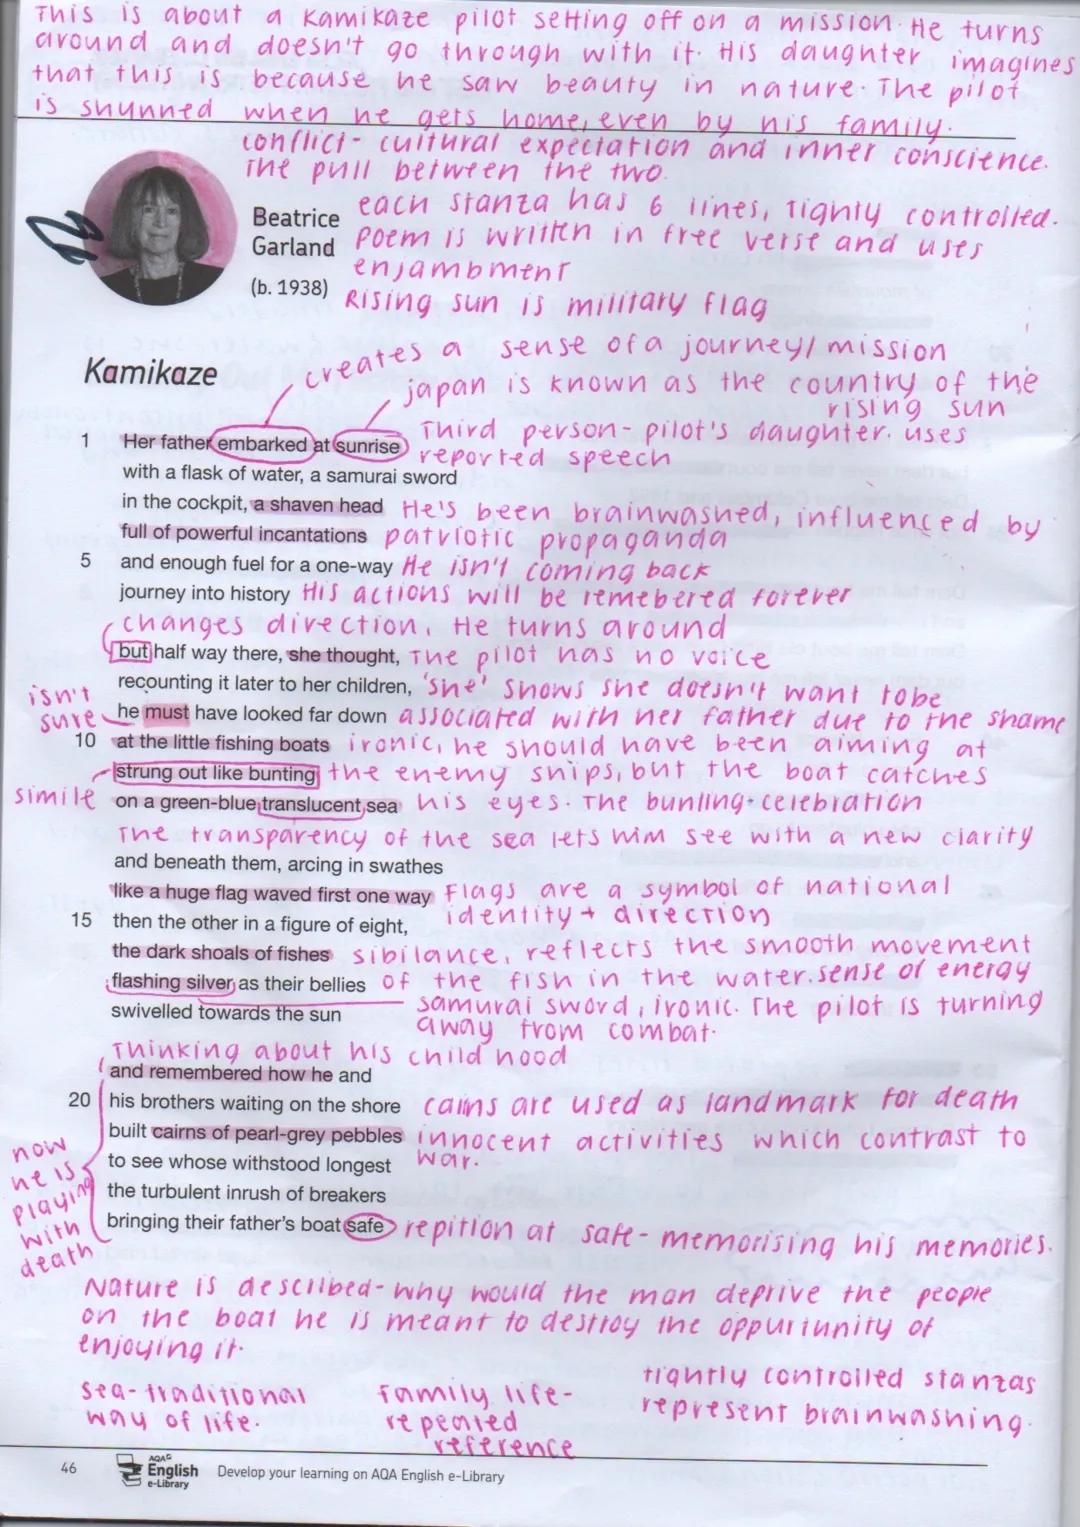 This is about a Kamikaze pilot setting off on a mission. He turns
around and doesn't go through with it. His daughter imagines
that this is because he saw beauty in nature. The pilot
is shunned when he gets home, even by his family.
conflict - cultural expectation and inner conscience.
The pull between the two.
Beatrice
Garland
(b. 1938)
each stanza has 6 lines, tighty controlled.
Poem is written in free verse and uses
enjambment
Rising sun is military flag
Kamikaze
creates a sense of a journey/mission
japan is known as the country of the
rising sun
1 Her father embarked at sunrise Third person - pilot's daughter. uses
reported speech
with a flask of water, a samurai sword
in the cockpit, a shaven head He's been brainwashed, influenced by
full of powerful incantations patriotic propaganda
5 and enough fuel for a one-way He isn't coming back
journey into history His actions will be remebered forever
changes direction, He turns around
but half way there, she thought, The pilot has no voice
recounting it later to her children, 'She' shows she doesn't want to be
isn't
sure
he must have looked far down associated with her father due to the shame
10 at the little fishing boats ironic, he should have been aiming at
strung out like bunting the enemy ships, but the boat catches
simile on a green-blue translucent sea his eyes. The bunting - celebration
The transparency of the sea lets him see with a new clarity
and beneath them, arcing in swathes
like a huge flag waved first one way Flags are a symbol of national
15 then the other in a figure of eight, identity + direction
the dark shoals of fishes sibilance, reflects the smooth movement
flashing silver as their bellies of the fish in the water. sense of energy
swivelled towards the sun samurai sword, ironic. The pilot is turning
away from combat.
Thinking about his childhood
and remembered how he and
20 his brothers waiting on the shore cairns are used as landmark for death
built cairns of pearl-grey pebbles innocent activities which contrast to
to see whose withstood longest war.
the turbulent inrush of breakers
now
he is
playing
with
death
bringing their father's boat safe repition at safe - memorising his memories.
Nature is described - why would the man deprive the people
on the boat he is meant to destroy the oppurtunity of
enjoying it.
sea - traditional
way of life.
family life -
repeated
reference
tightly controlled stanzas
represent brainwashing.
46
AQA
English
e-Library
Develop your learning on AQA English e-Library